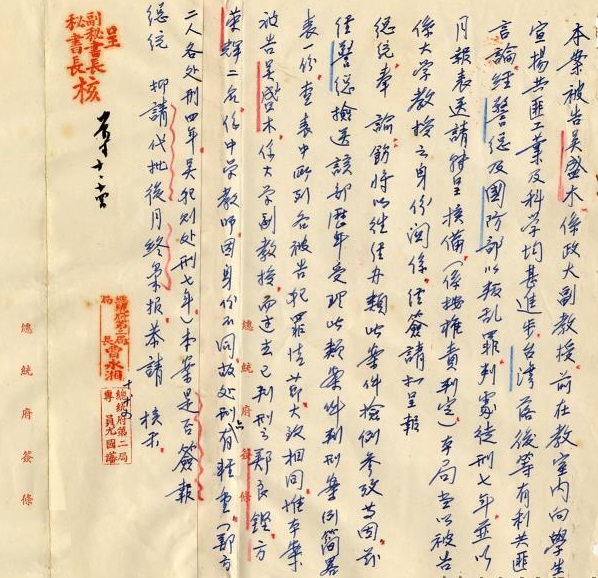 本案被告吳盛木係政大副教授前在教室內向學生
宣揚共匪工業及科學均甚進步台灣落後等有利共匪
言論經警總及國防部以叛乱罪判處徒刑七年並以
月報表送請轉呈核備(係授權責判定)本局當以被告
係大学教授之身份関係經簽請扣呈報
總統奉諭飭將以往經办類此案件檢例参攷等因茲
經警總檢送該部歷年受理此類案件判刑案例簡畧
表一份查表中所列各被告犯罪情節大致相同惟本案
被告吳盛木係大学副教授而过去已判刑之鄭良鏗方
荣輝二名係中学教師因身份不同故处刑有輕重(鄭方
二人各处刑四年吳犯則处刑七年)本案是否簽報
總統抑請代批後月終彙报恭請核示
呈
副秘書長
秘書長 核
總統府第二局
局長曹永湘
十、十四
總統府第二局
專員尤國藩
總統府簽條
總統府簽條